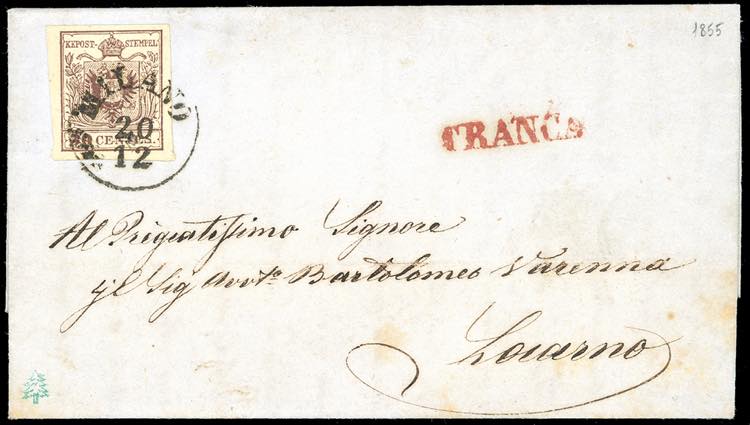 1855
KEPOST-STEMPEL
MILANO
20
12
CENTES.
FRANCA
Al Pregiatissimo Signore
il Sig Avvto Bartolomeo Varenna
Locarno